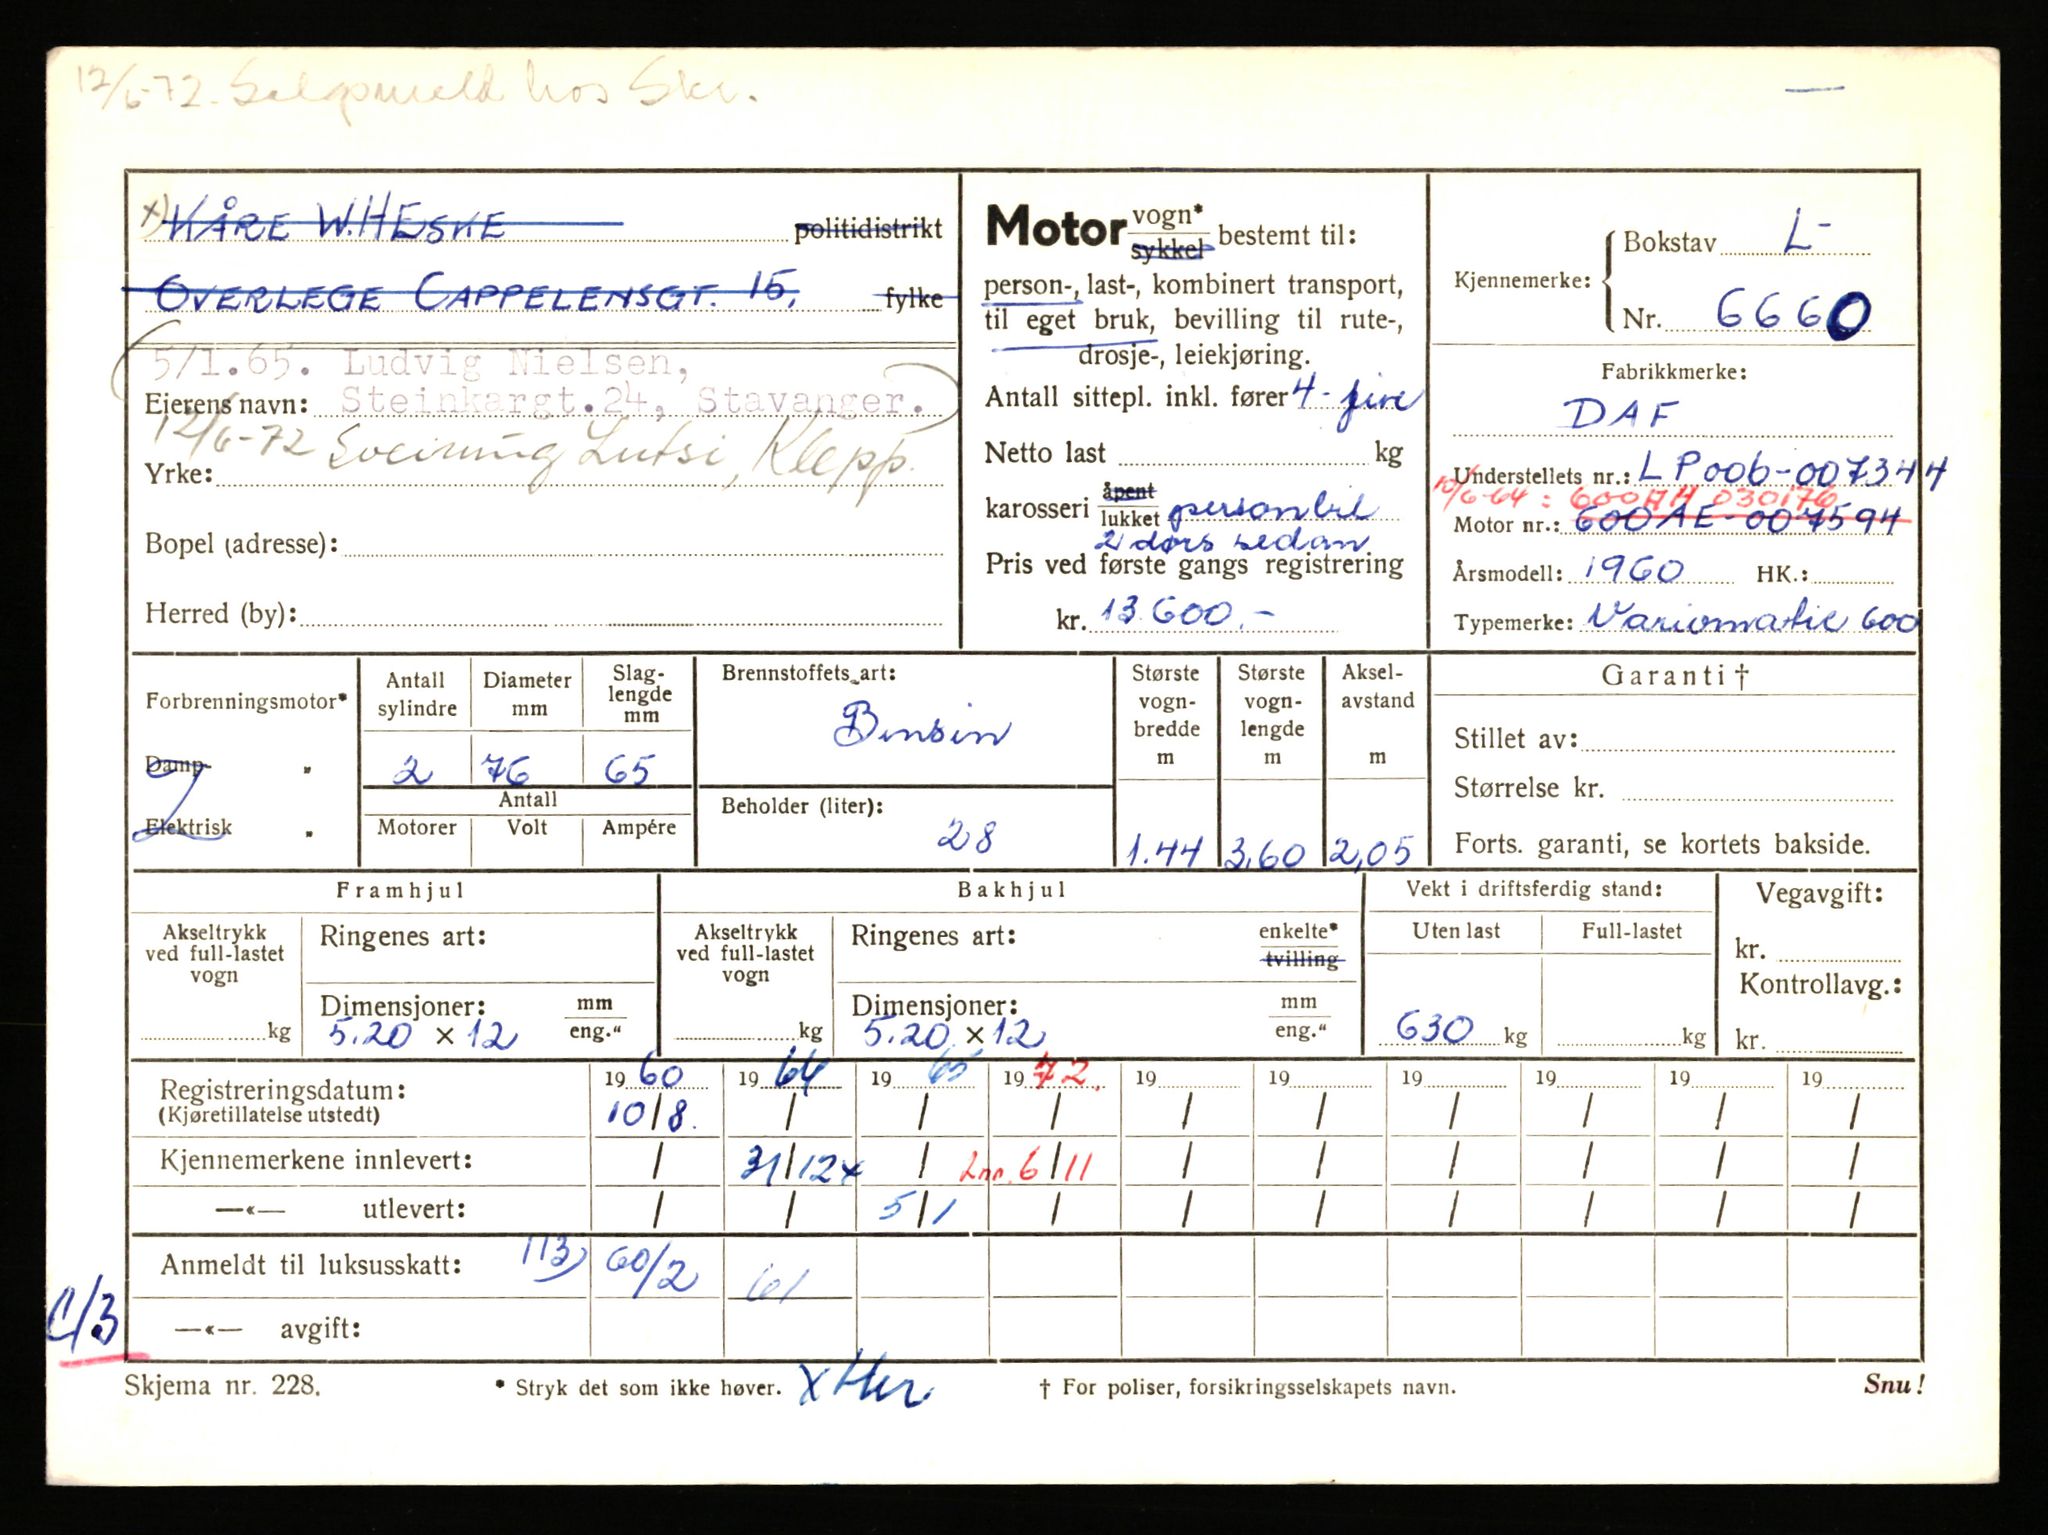 12/6-72. Salgsmeld hos Skr.
x) KÅRE W. HESKE politidistrikt
OVERLEGE CAPPELENSGT. 15, fylke
5/1.65. Ludvig Nielsen,
Eierens navn: Steinkargt.24, Stavanger.
12/6-72 Sveinung Lutsi, Klepp.
Yrke:
Bopel (adresse):
Herred (by):
Motor vogn* sykkel bestemt til:
person-, last-, kombinert transport,
til eget bruk, bevilling til rute-,
drosje-, leiekjøring.
Antall sittepl. inkl. fører 4 - fire
Netto last kg
karosseri åpent lukket personbil
2 dørs sedan
Pris ved første gangs registrering
kr. 13.600.-
Kjennemerke: Bokstav L-
Nr. 6660
Fabrikkmerke:
DAF
Understellets nr.: LP006-007344
10/6-64: 600AH 030176
Motor nr.: 600AE-007594
Årsmodell: 1960 HK.:
Typemerke: Variomatic 600
Forbrenningsmotor*
Damp- "
Elektrisk "
Antall sylindre Diameter mm Slag-lengde mm
2 76 65
Antall
Motorer Volt Ampére
Brennstoffets art:
Bensin
Beholder (liter):
28
Største vogn-bredde m Største vogn-lengde m Aksel-avstand m
1.44 3,60 2,05
Garanti †
Stillet av:
Størrelse kr.
Forts. garanti, se kortets bakside.
Framhjul
Akseltrykk ved full-lastet vogn
kg
Ringenes art:
Dimensjoner: mm eng."
5.20 x 12
Bakhjul
Akseltrykk ved full-lastet vogn
kg
Ringenes art: enkelte* tvilling
Dimensjoner: mm eng."
5.20 x 12
Vekt i driftsferdig stand:
Uten last Full-lastet
630 kg kg
Vegavgift:
kr.
Kontrollavg.:
kr.
Registreringsdatum: 19 60 19 64 19 65 19 72. 19 19 19 19 19 19
(Kjøretillatelse utstedt) 10/8. / / / / / / / / /
Kjennemerkene innlevert: / 31/12x / 2nr. 6/11 / / / / / /
—«— utlevert: / / 5/1 / / / / / / /
Anmeldt til luksusskatt: 113) 60/2 61
C/3
—«— avgift:
Skjema nr. 228. * Stryk det som ikke høver. X Her † For poliser, forsikringsselskapets navn. Snu!